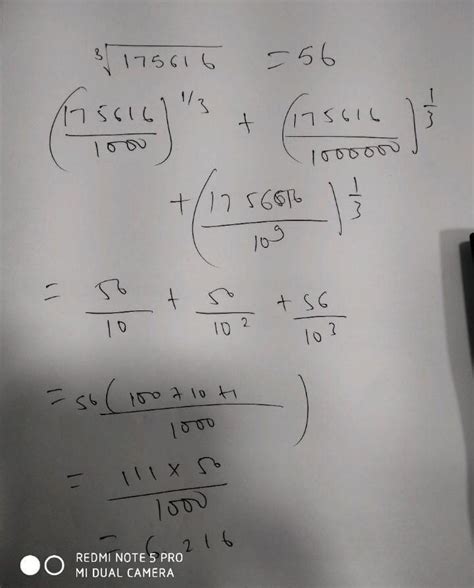 ∛175616 = 56
(175616/1000)^1/3 + (175616/1000000)^1/3
+ (175616/10^9)^1/3
= 56/10 + 56/10^2 + 56/10^3
= 56 (100 + 10 + 1/1000)
= 111 × 56/1000
= 6.216
REDMI NOTE 5 PRO
MI DUAL CAMERA